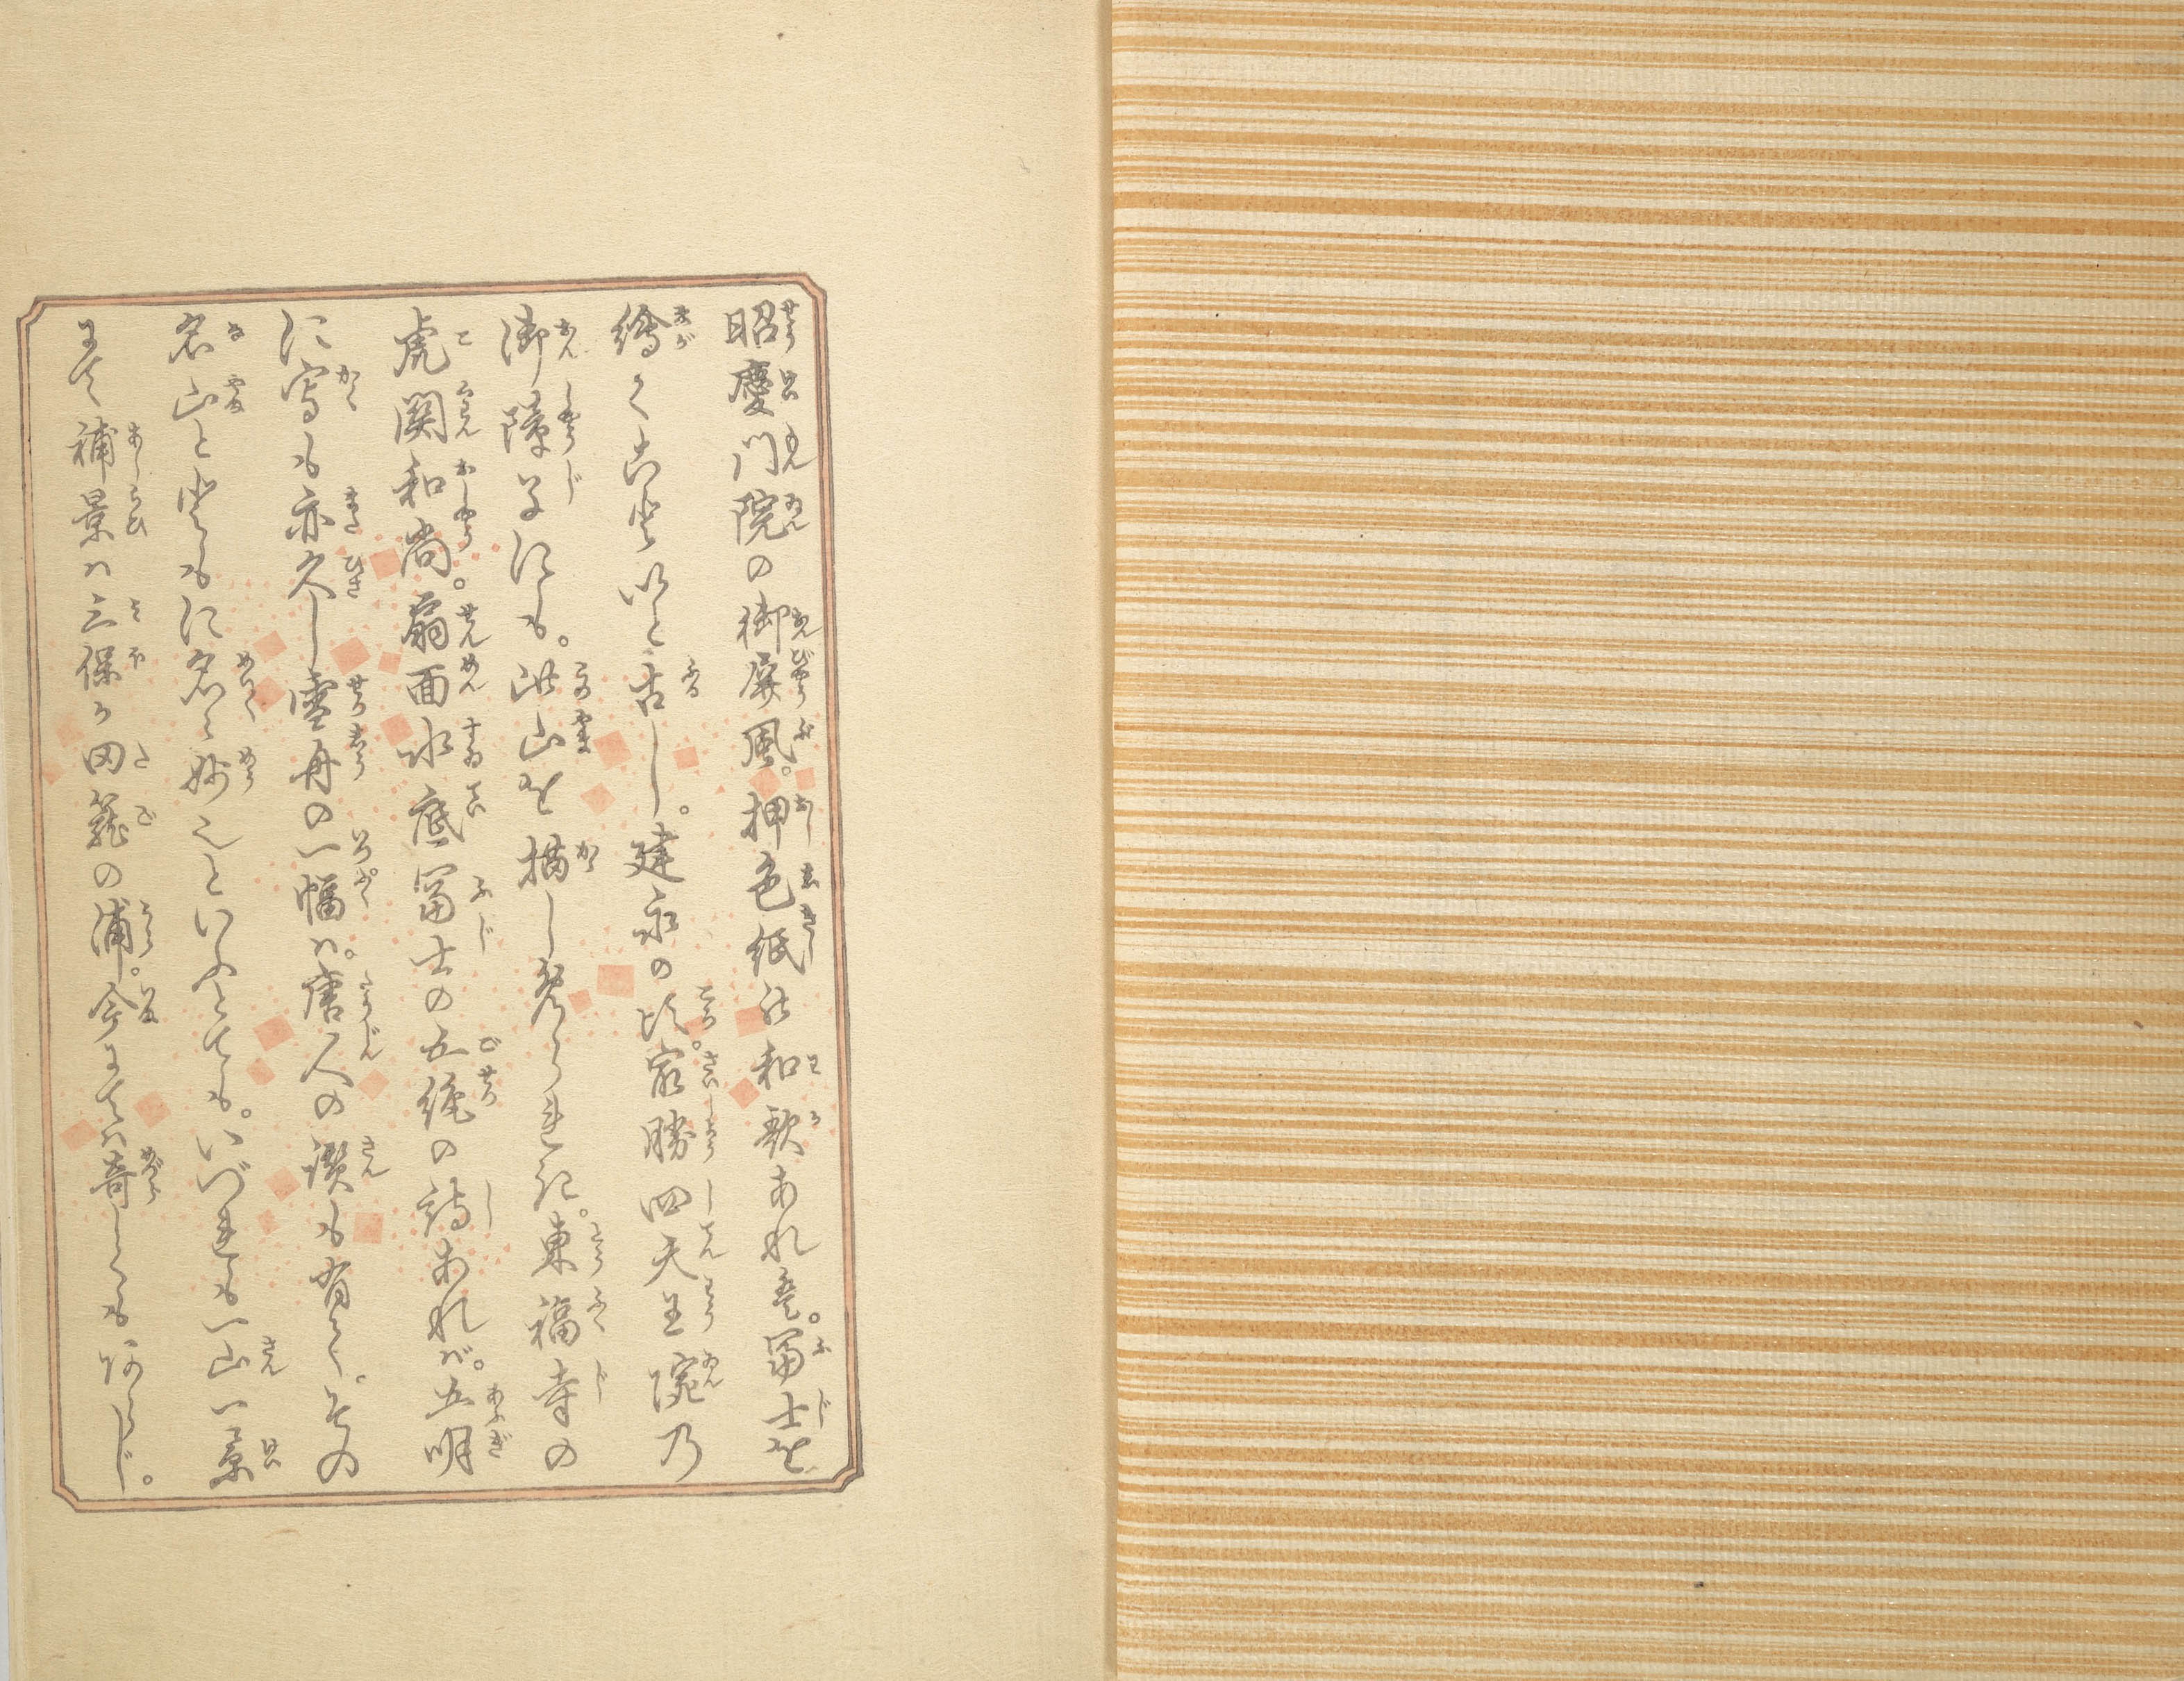 昭慶門院の御屏風。押色紙の和歌あれば。冨士を
繪く事いと古し。建永の比。最勝四天王院乃
御障子にも。此山を描しめられき。東福寺の
虎関和尚。扇面水底冨士の五絶の詩あれバ。五明
に寫も亦久し雪舟の一幅ハ。唐人の讃も有て。その
名山と共に名ゝ妙なりといふとも。いづれも一山一景
にて補景ハ三保か田籠の浦。今にてハ奇しくもあらじ。